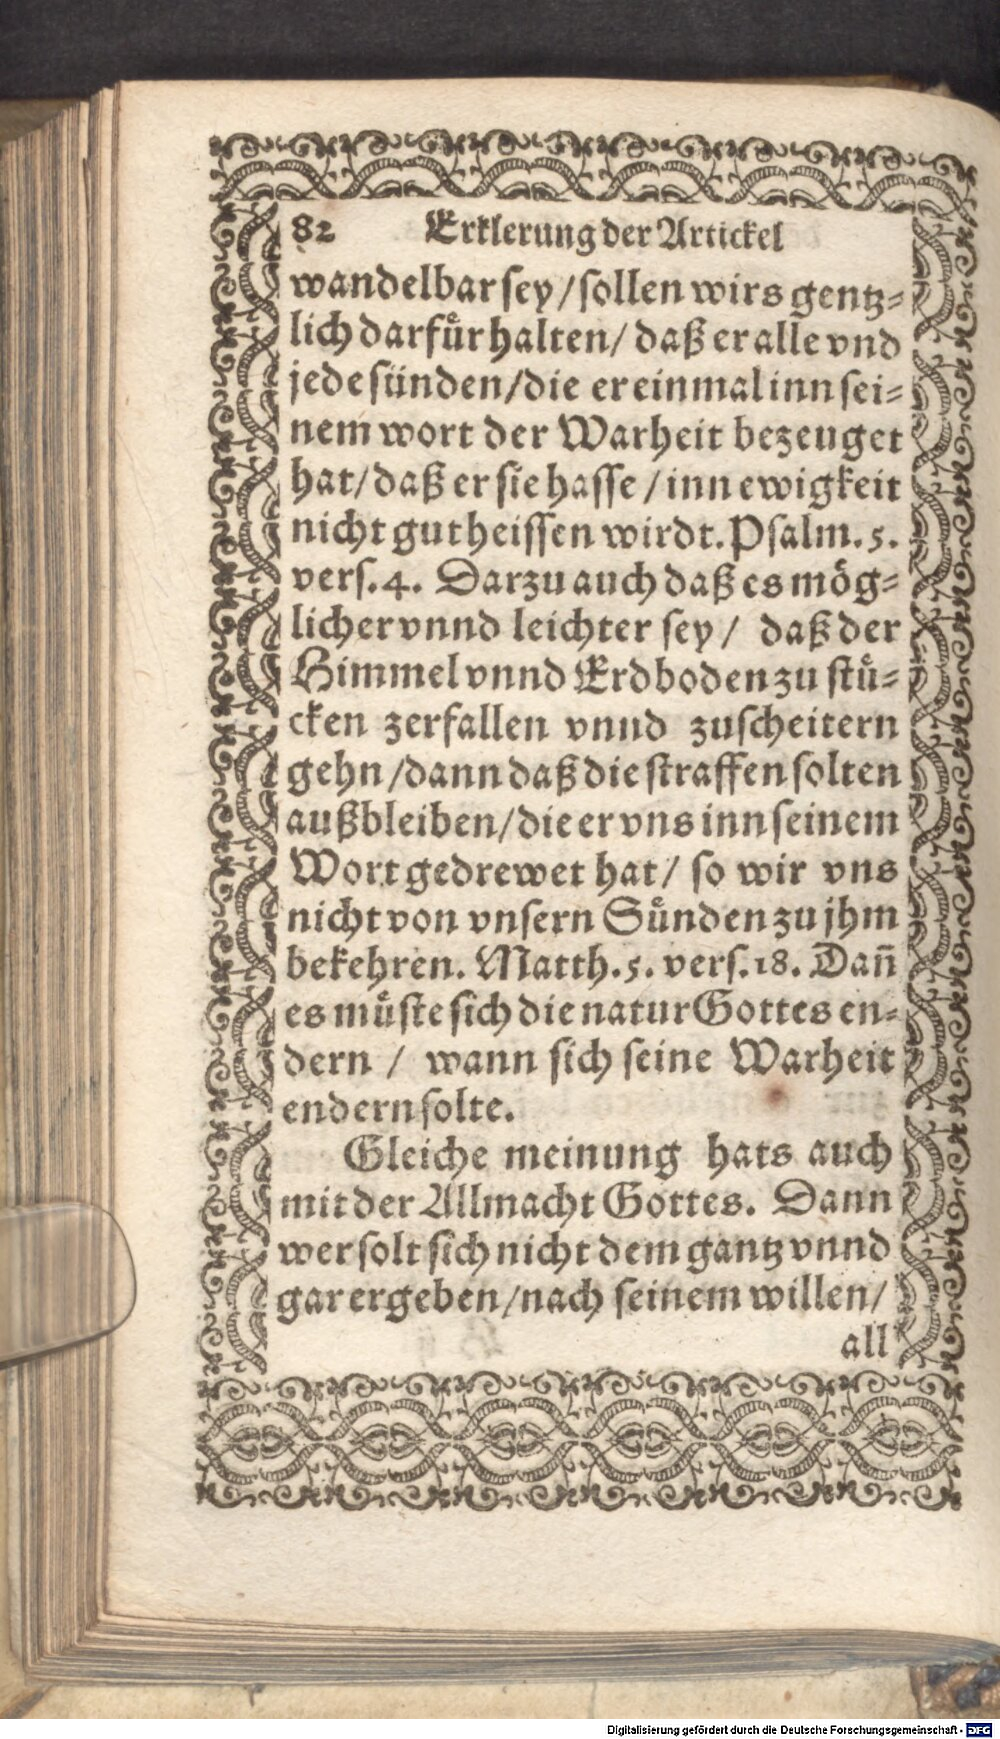 82 Erklerung der Artickel
wandelbar sey / sollen wirs gentz-
lich darfuͤr halten / daß er alle vnd
jede sünden / die er einmal inn sei-
nem wort der Warheit bezeuget
hat / daß er sie hasse / inn ewigkeit
nicht gut heissen wirdt. Psalm. 5.
vers. 4. Darzu auch daß es mög-
licher vnnd leichter sey / daß der
Himmel vnnd Erdboden zu stuͤ-
cken zerfallen vnnd zuscheitern
gehn / dann daß die straffen solten
außbleiben / die er vns inn seinem
Wort gedrewet hat / so wir vns
nicht von vnsern Suͤnden zu jhm
bekehren. Matth. 5. vers. 18. Dañ
es muͤste sich die natur Gottes en-
dern / wann sich seine Warheit
endern solte.
Gleiche meinung hats auch
mit der Allmacht Gottes. Dann
wer solt sich nicht dem gantz vnnd
gar ergeben / nach seinem willen /
all
Digitalisierung gefördert durch die Deutsche Forschungsgemeinschaft - DFG